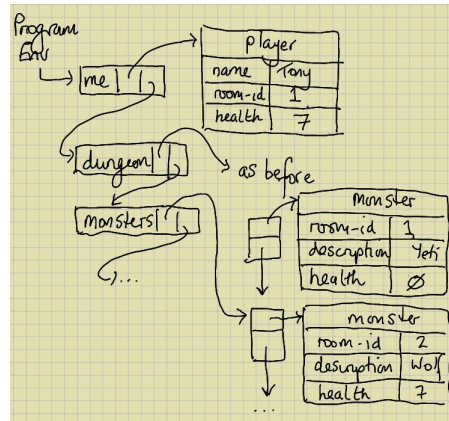 Program
Env
me
player
name Tony
room-id 1
health 7
dungeon
as before
monsters
...
monster
room-id 1
description Yeti
health Ø
monster
room-id 2
description Wolf
health 7
...